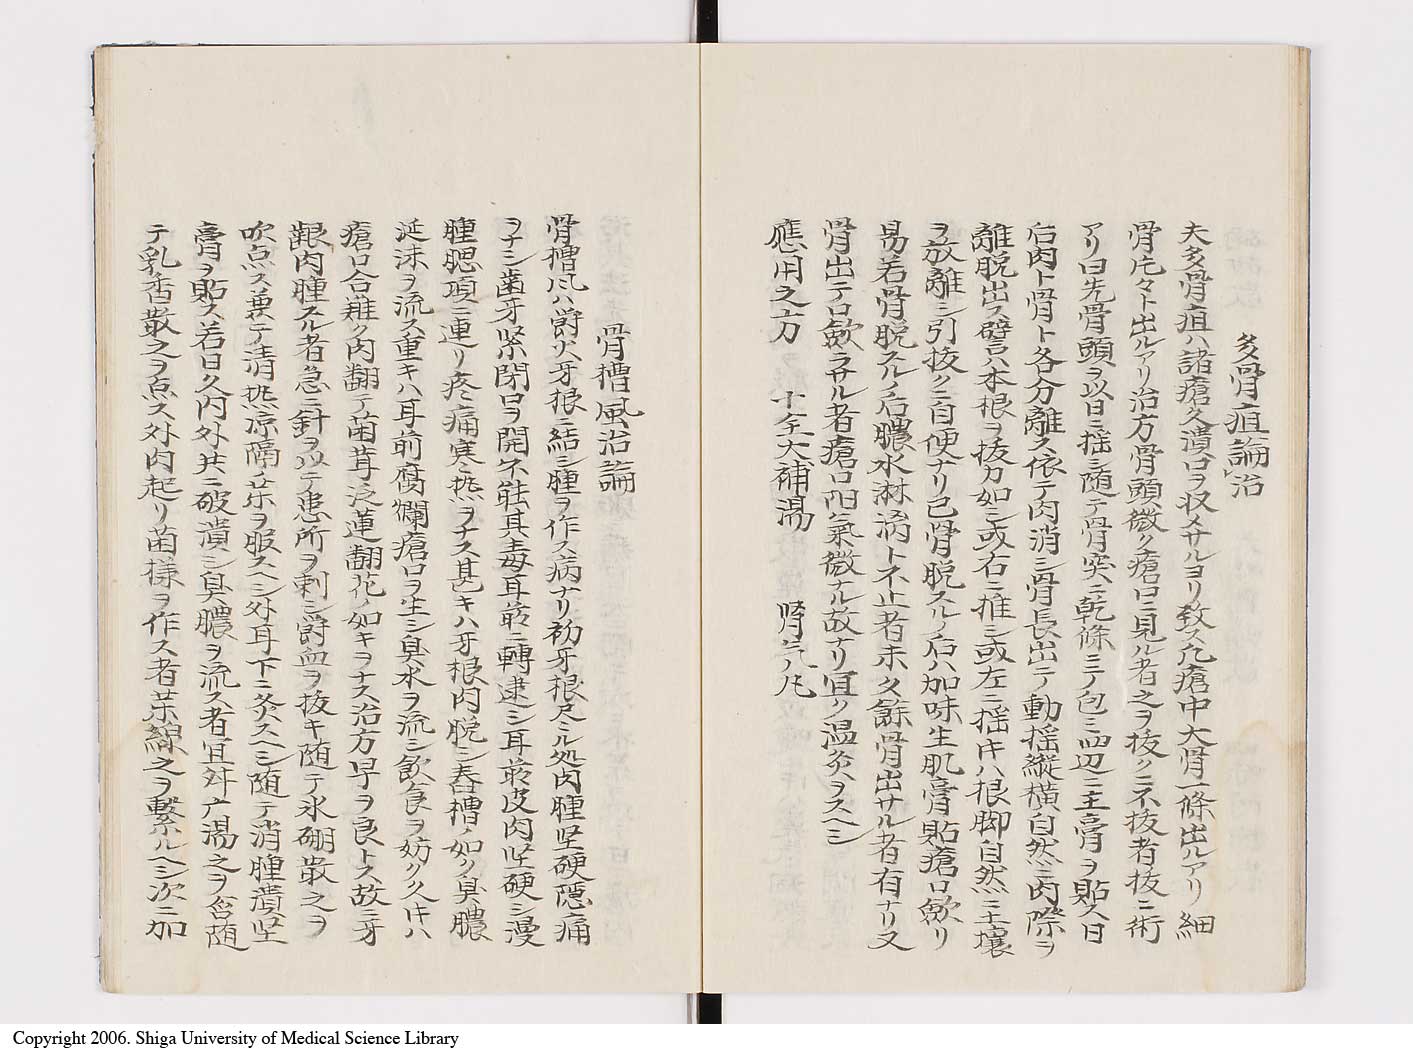 多骨疽論治
夫多骨疽ハ諸瘡久潰口ヲ收メサルヨリ致ス凡瘡中大骨一條出ルアリ細
骨片々ト出ルアリ治方骨頭微ク瘡口ニ見ル者之ヲ抜クニ不抜者抜ニ術
アリ曰先骨頭ヲ以日ニ揺シ随テ骨突ニ乾綿ニテ包ミ四辺ニ玉膏ヲ貼ス日
后肉ト骨ト各分離ス依テ肉消シ骨長出テ動揺縦横自然ニ肉際ヲ
離脱出ス譬ハ木根ヲ抜カ如シ或右ニ推シ或左ニ揺キハ根脚自然ニ土壤
ヲ放離シ引抜クニ自便ナリ已骨脱スルノ后ハ加味生肌膏貼瘡口歛リ
易若骨脱スルノ后膿水淋漓ト不止者未タ餘骨出サル者有ナリ又
骨出テ口歛ラサル者瘡口陽氣微ナル故ナリ宜ク温灸ヲスヘシ
應用之方 十全大補湯 腎气八凡
骨槽風治論
骨槽風ハ爵大牙根ニ結シ腫ヲ作ス病ナリ初牙根尽ル処肉腫坚硬隠痛
ヲナシ歯牙緊閉口ヲ開不能其毒耳前ニ轉逮シ耳前皮肉坚硬シ漫
腫腮項ニ連リ疼痛寒热ヲナス甚キハ牙根肉脱シ舂槽ノ如ク臭膿
涎沫ヲ流ス重キハ耳前腐爛瘡口ヲ生シ臭水ヲ流シ飲食ヲ妨ク久キハ
瘡口合難ク肉翻テ菌茸泛蓮翻花ノ如キヲナス治方早ヲ良トス故ニ牙
齦肉腫スル者急ニ針ヲ以テ患所ヲ刺シ爵血ヲ抜キ随テ氷硼散之ヲ
吹点ス兼テ清热凉隔ノ薬ヲ服スヘシ外耳下ニ灸スヘシ随テ消腫潰坚
膏ヲ貼ス若日久内外共ニ破潰シ臭膿ヲ流ス者宜升广湯之ヲ含随
テ乳香散之ヲ点ス外肉起リ菌様ヲ作ス者薬線之ヲ繋ルヘシ次ニ加
Copyright 2006. Shiga University of Medical Science Library